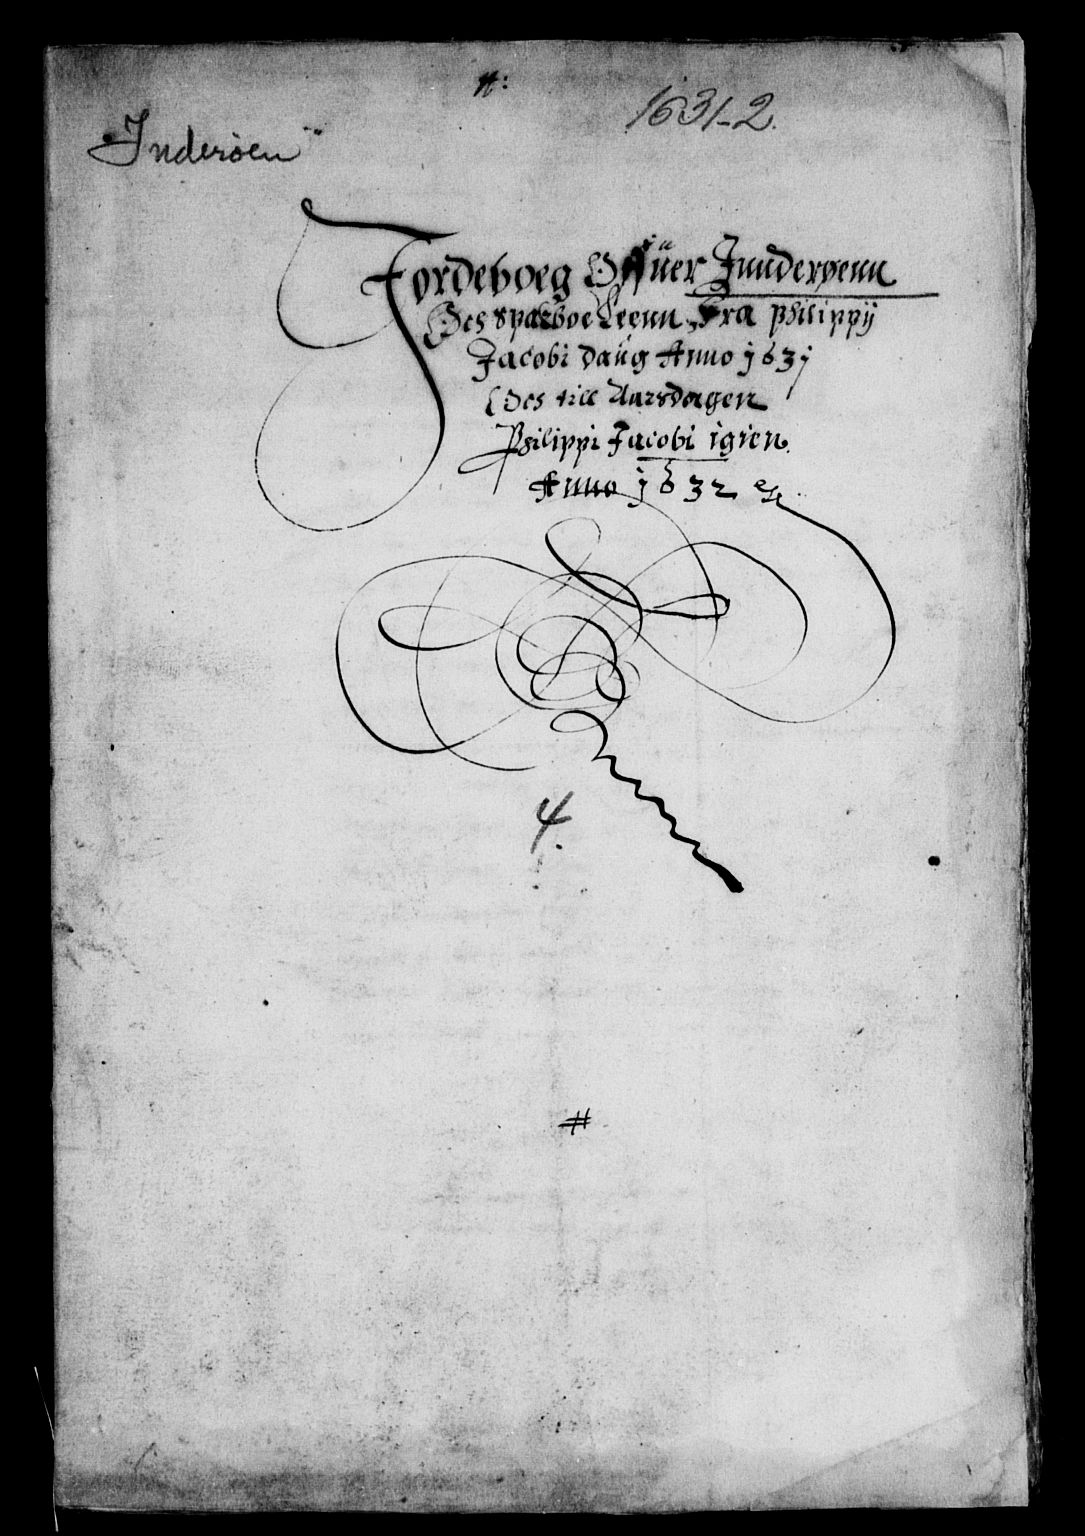 #:
1631-2.
Inderöen
Jordeboeg Offuer Inndersenn
Och Sparboe Leenn, Fra Philippij
Jacobi daug Anno 1631
Och till Aarsdagen
Philippi Jacobi igien.
Anno 1632
4.
#